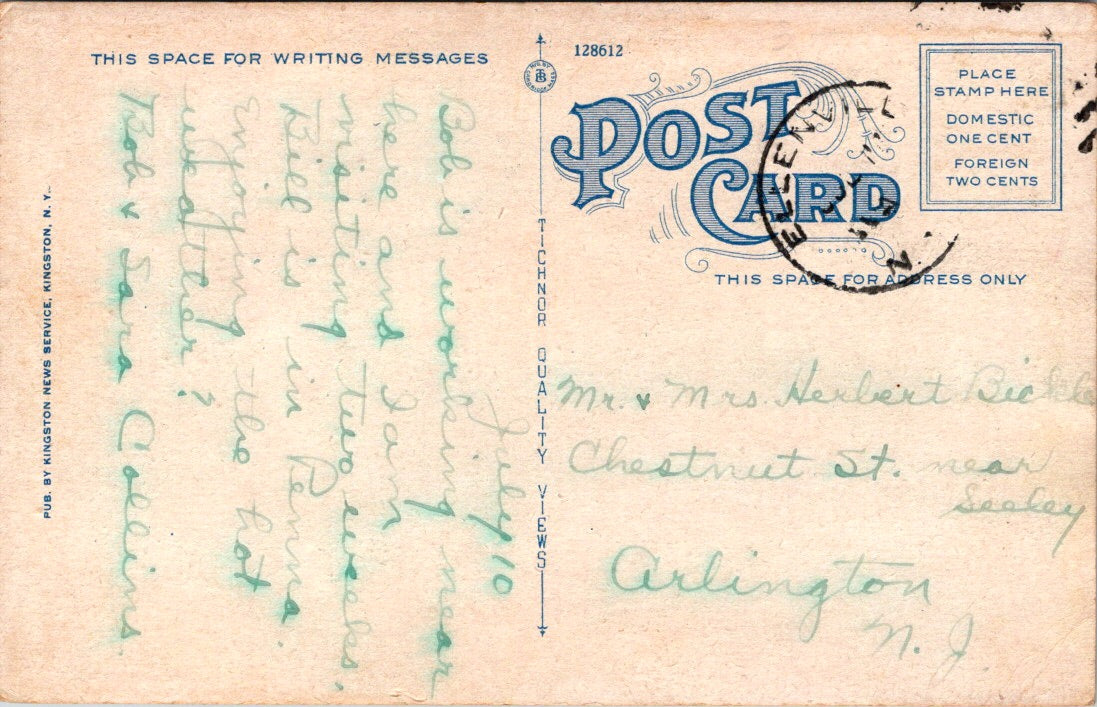 THIS SPACE FOR WRITING MESSAGES
July 10
Bob is working near
here and I am
visiting two weeks.
Bill is in Penna.
Enjoying the hot
weather?
Bob & Sara Collins
PUB. BY KINGSTON NEWS SERVICE, KINGSTON, N. Y.
TICHNOR QUALITY VIEWS
128612
POST
CARD
PLACE
STAMP HERE
DOMESTIC
ONE CENT
FOREIGN
TWO CENTS
THIS SPACE FOR ADDRESS ONLY
Mr. & Mrs Herbert
Chestnut St. near
Seeley
Arlington
N. J.